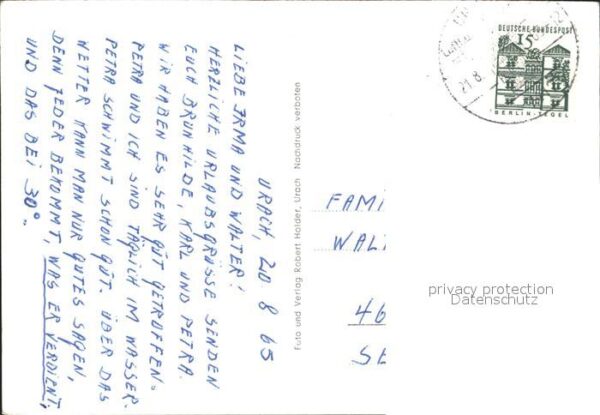 URACH, 20 8 65
LIEBE IRMA UND WALTER!
HERZLICHE URLAUBSGRÜSSE SENDEN
EUCH BRUNHILDE, KARL UND PETRA.
WIR HABEN ES SEHR GUT GETROFFEN.
PETRA UND ICH SIND TÄGLICH IM WASSER.
PETRA SCHWIMMT SCHON GUT. ÜBER DAS
WETTER KANN MAN NUR GUTES SAGEN,
DENN JEDER BEKOMMT, WAS ER VERDIENT,
UND DAS BEI 30°.
Foto und Verlag Robert Holder, Urach Nachdruck verboten
DEUTSCHE BUNDESPOST
15
BERLIN-TEGEL
21.8.
FAMI
WAL
46
SE
privacy protection
Datenschutz